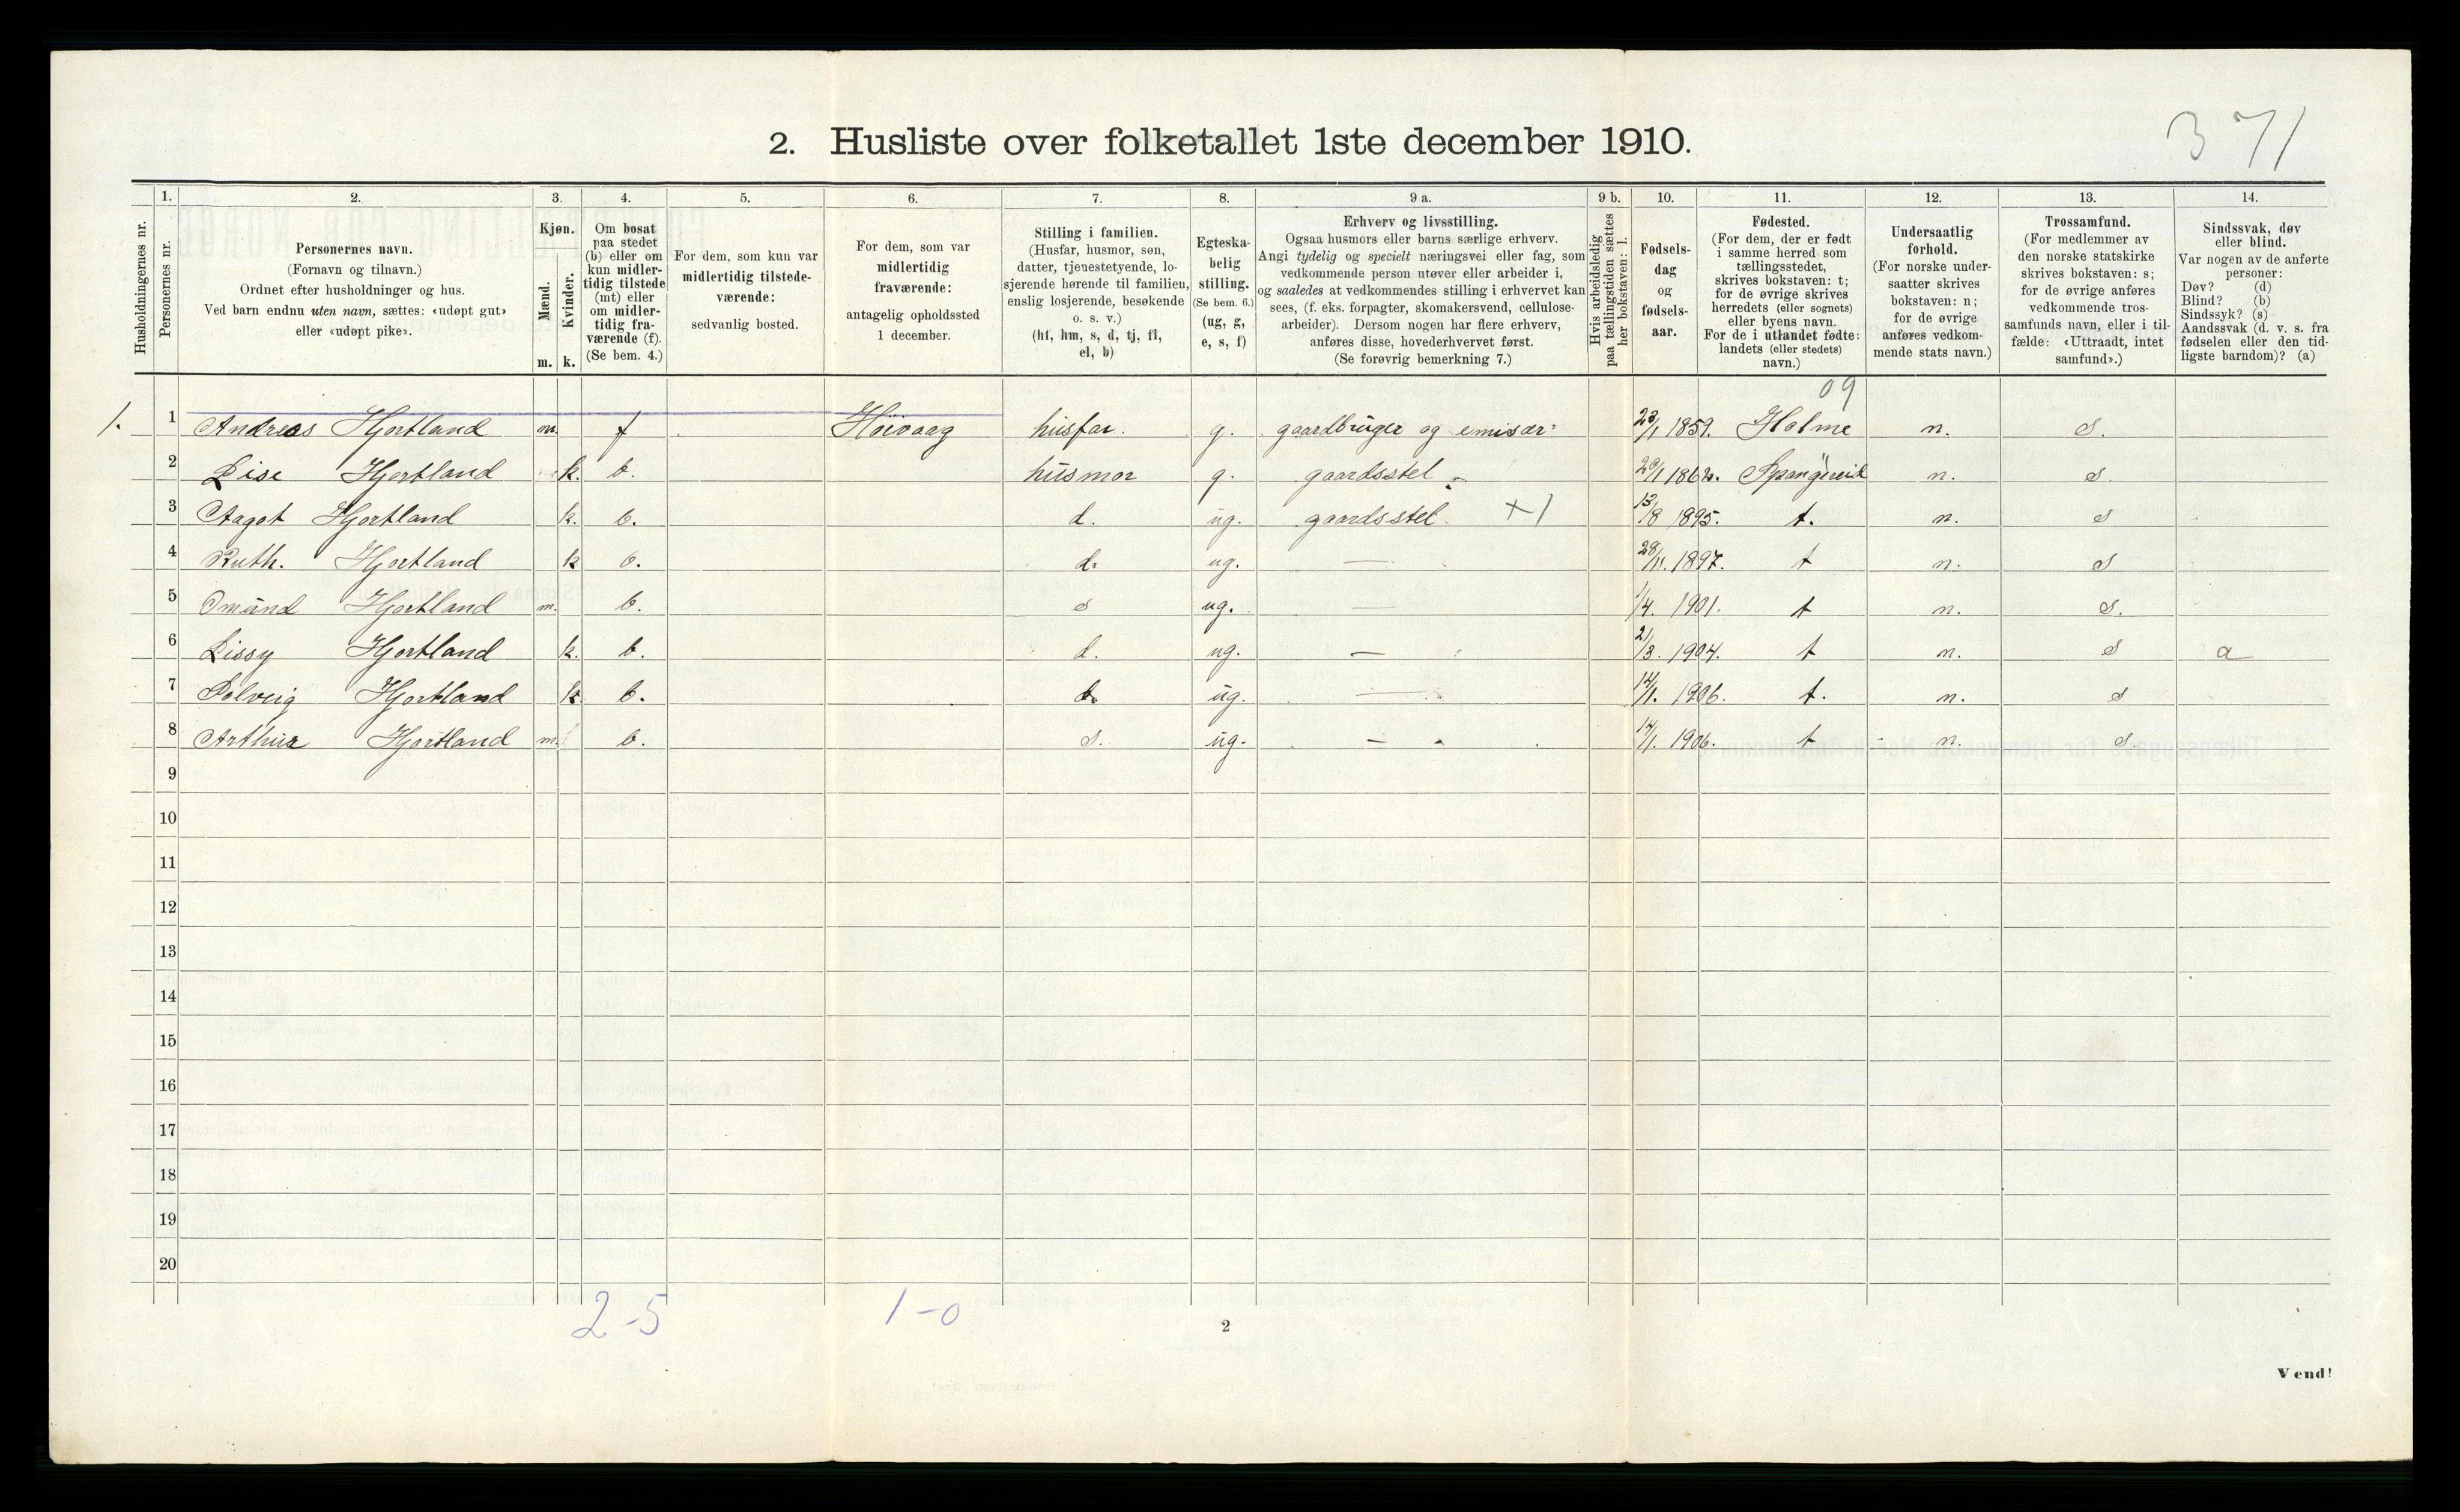 371
2. Husliste over folketallet 1ste december 1910.
1. 2. 3. 4. 5. 6. 7. 8. 9 a. 9 b. 10. 11. 12. 13. 14.
Husholdningernes nr.
Personernes nr.
Personernes navn.
(Fornavn og tilnavn.)
Ordnet efter husholdninger og hus.
Ved barn endnu uten navn, sættes: «udøpt gut»
eller «udøpt pike».
Kjøn.
Mænd.
Kvinder.
m. k.
Om bosat
paa stedet
(b) eller om
kun midler-
tidig tilstede
(mt) eller
om midler-
tidig fra-
værende (f).
(Se bem. 4.)
For dem, som kun var
midlertidig tilstede-
værende:
sedvanlig bosted.
For dem, som var
midlertidig
fraværende:
antagelig opholdssted
1 december.
Stilling i familien.
(Husfar, husmor, søn,
datter, tjenestetyende, lo-
sjerende hørende til familien,
enslig losjerende, besøkende
o. s. v.)
(hf, hm, s, d, tj, fl,
el, b)
Egteska-
belig
stilling.
(Se bem. 6.)
(ug, g,
e, s, f)
Erhverv og livsstilling.
Ogsaa husmors eller barns særlige erhverv.
Angi tydelig og specielt næringsvei eller fag, som
vedkommende person utøver eller arbeider i,
og saaledes at vedkommendes stilling i erhvervet kan
sees, (f. eks. forpagter, skomakersvend, cellulose-
arbeider). Dersom nogen har flere erhverv,
anføres disse, hovederhvervet først.
(Se forøvrig bemerkning 7.)
Hvis arbeidsledig
paa tællingstiden sættes
her bokstaven: l.
Fødsels-
dag
og
fødsels-
aar.
Fødested.
(For dem, der er født
i samme herred som
tællingsstedet,
skrives bokstaven: t;
for de øvrige skrives
herredets (eller sognets)
eller byens navn.
For de i utlandet fødte:
landets (eller stedets)
navn.)
Undersaatlig
forhold.
(For norske under-
saatter skrives
bokstaven: n;
for de øvrige
anføres vedkom-
mende stats navn.)
Trossamfund.
(For medlemmer av
den norske statskirke
skrives bokstaven: s;
for de øvrige anføres
vedkommende tros-
samfunds navn, eller i til-
fælde: «Uttraadt, intet
samfund».)
Sindssvak, døv
eller blind.
Var nogen av de anførte
personer:
Døv? (d)
Blind? (b)
Sindssyk? (s)
Aandssvak (d. v. s. fra
fødselen eller den tid-
ligste barndom)? (a)
09
1. 1 Andreas Hjortland m. f Höivaag husfar. g. gaardbruger og emisær 23/1 1859. Holme n. s.
2 Lise Hjortland k. b. husmor g. gaardsstel 20/1 1862. Spangereid n. s.
3 Aagot Hjortland k. b. d. ug. gaardsstel X 1 13/8 1895. t. n. s
4 Ruth. Hjortland k b. d. ug. — 28/11. 1897. t n. s
5 Omund Hjortland m. b. s ug. — 1/4. 1901. t n. s.
6 Lissy Hjortland k. b. d. ug. — 21/3. 1904. t n. s a
7 Solveig Hjortland k. b. d. ug. — 14/1. 1906. t. n. s
8 Arthur Hjortland m. b. s. ug. — 14/1. 1906. t n. s.
9
10
11
12
13
14
15
16
17
18
19
20
2-5 1-0
2
Vend!